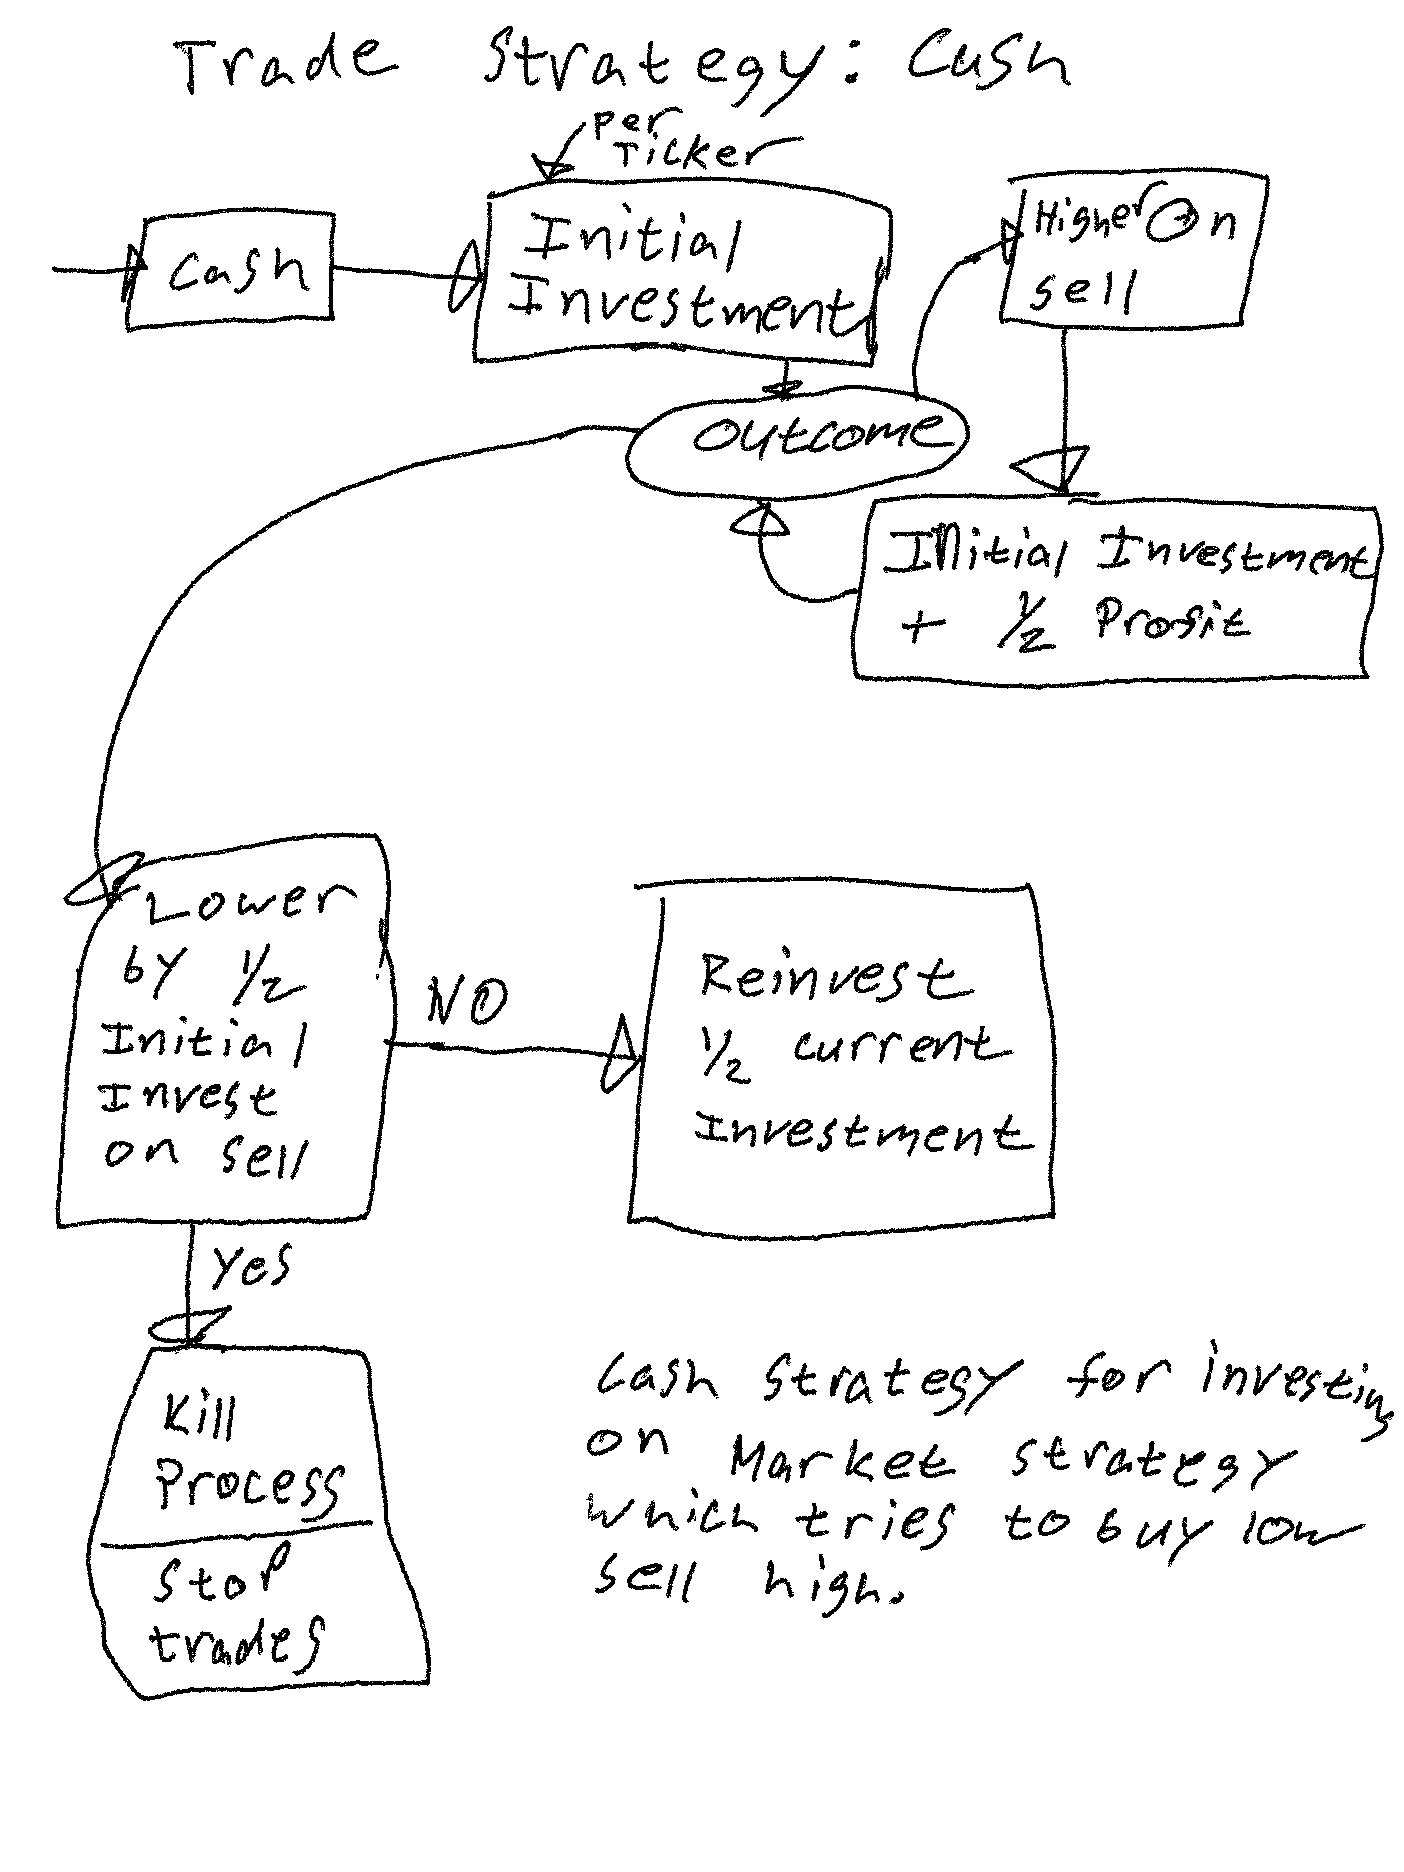 Trade Strategy: Cash
Per
Ticker
Cash
Initial
Investment
Higher on
sell
outcome
Initial Investment
+ 1/2 Profit
Lower
by 1/2
Initial
Invest
on sell
NO
Reinvest
1/2 current
Investment
Yes
Kill
Process
Stop
trades
Cash Strategy for investing
on Market strategy
which tries to buy low
sell high.